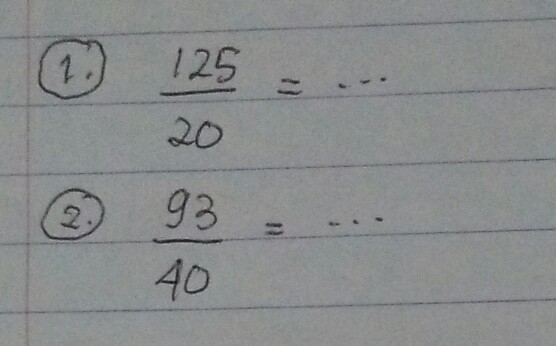 1. 125/20 = ...
2. 93/40 = ...